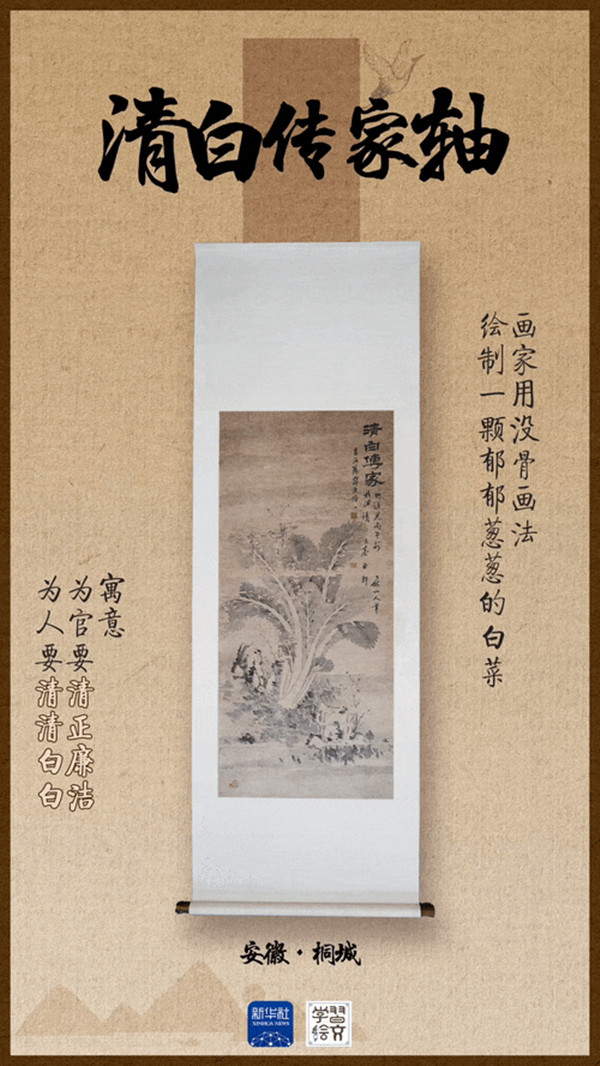 清白传家轴
画家用没骨画法
绘制一颗郁郁葱葱的白菜
清白傳家
寓意
为官要清正廉洁
为人要清清白白
安徽·桐城
新华社
XINHUA NEWS
学习绘文